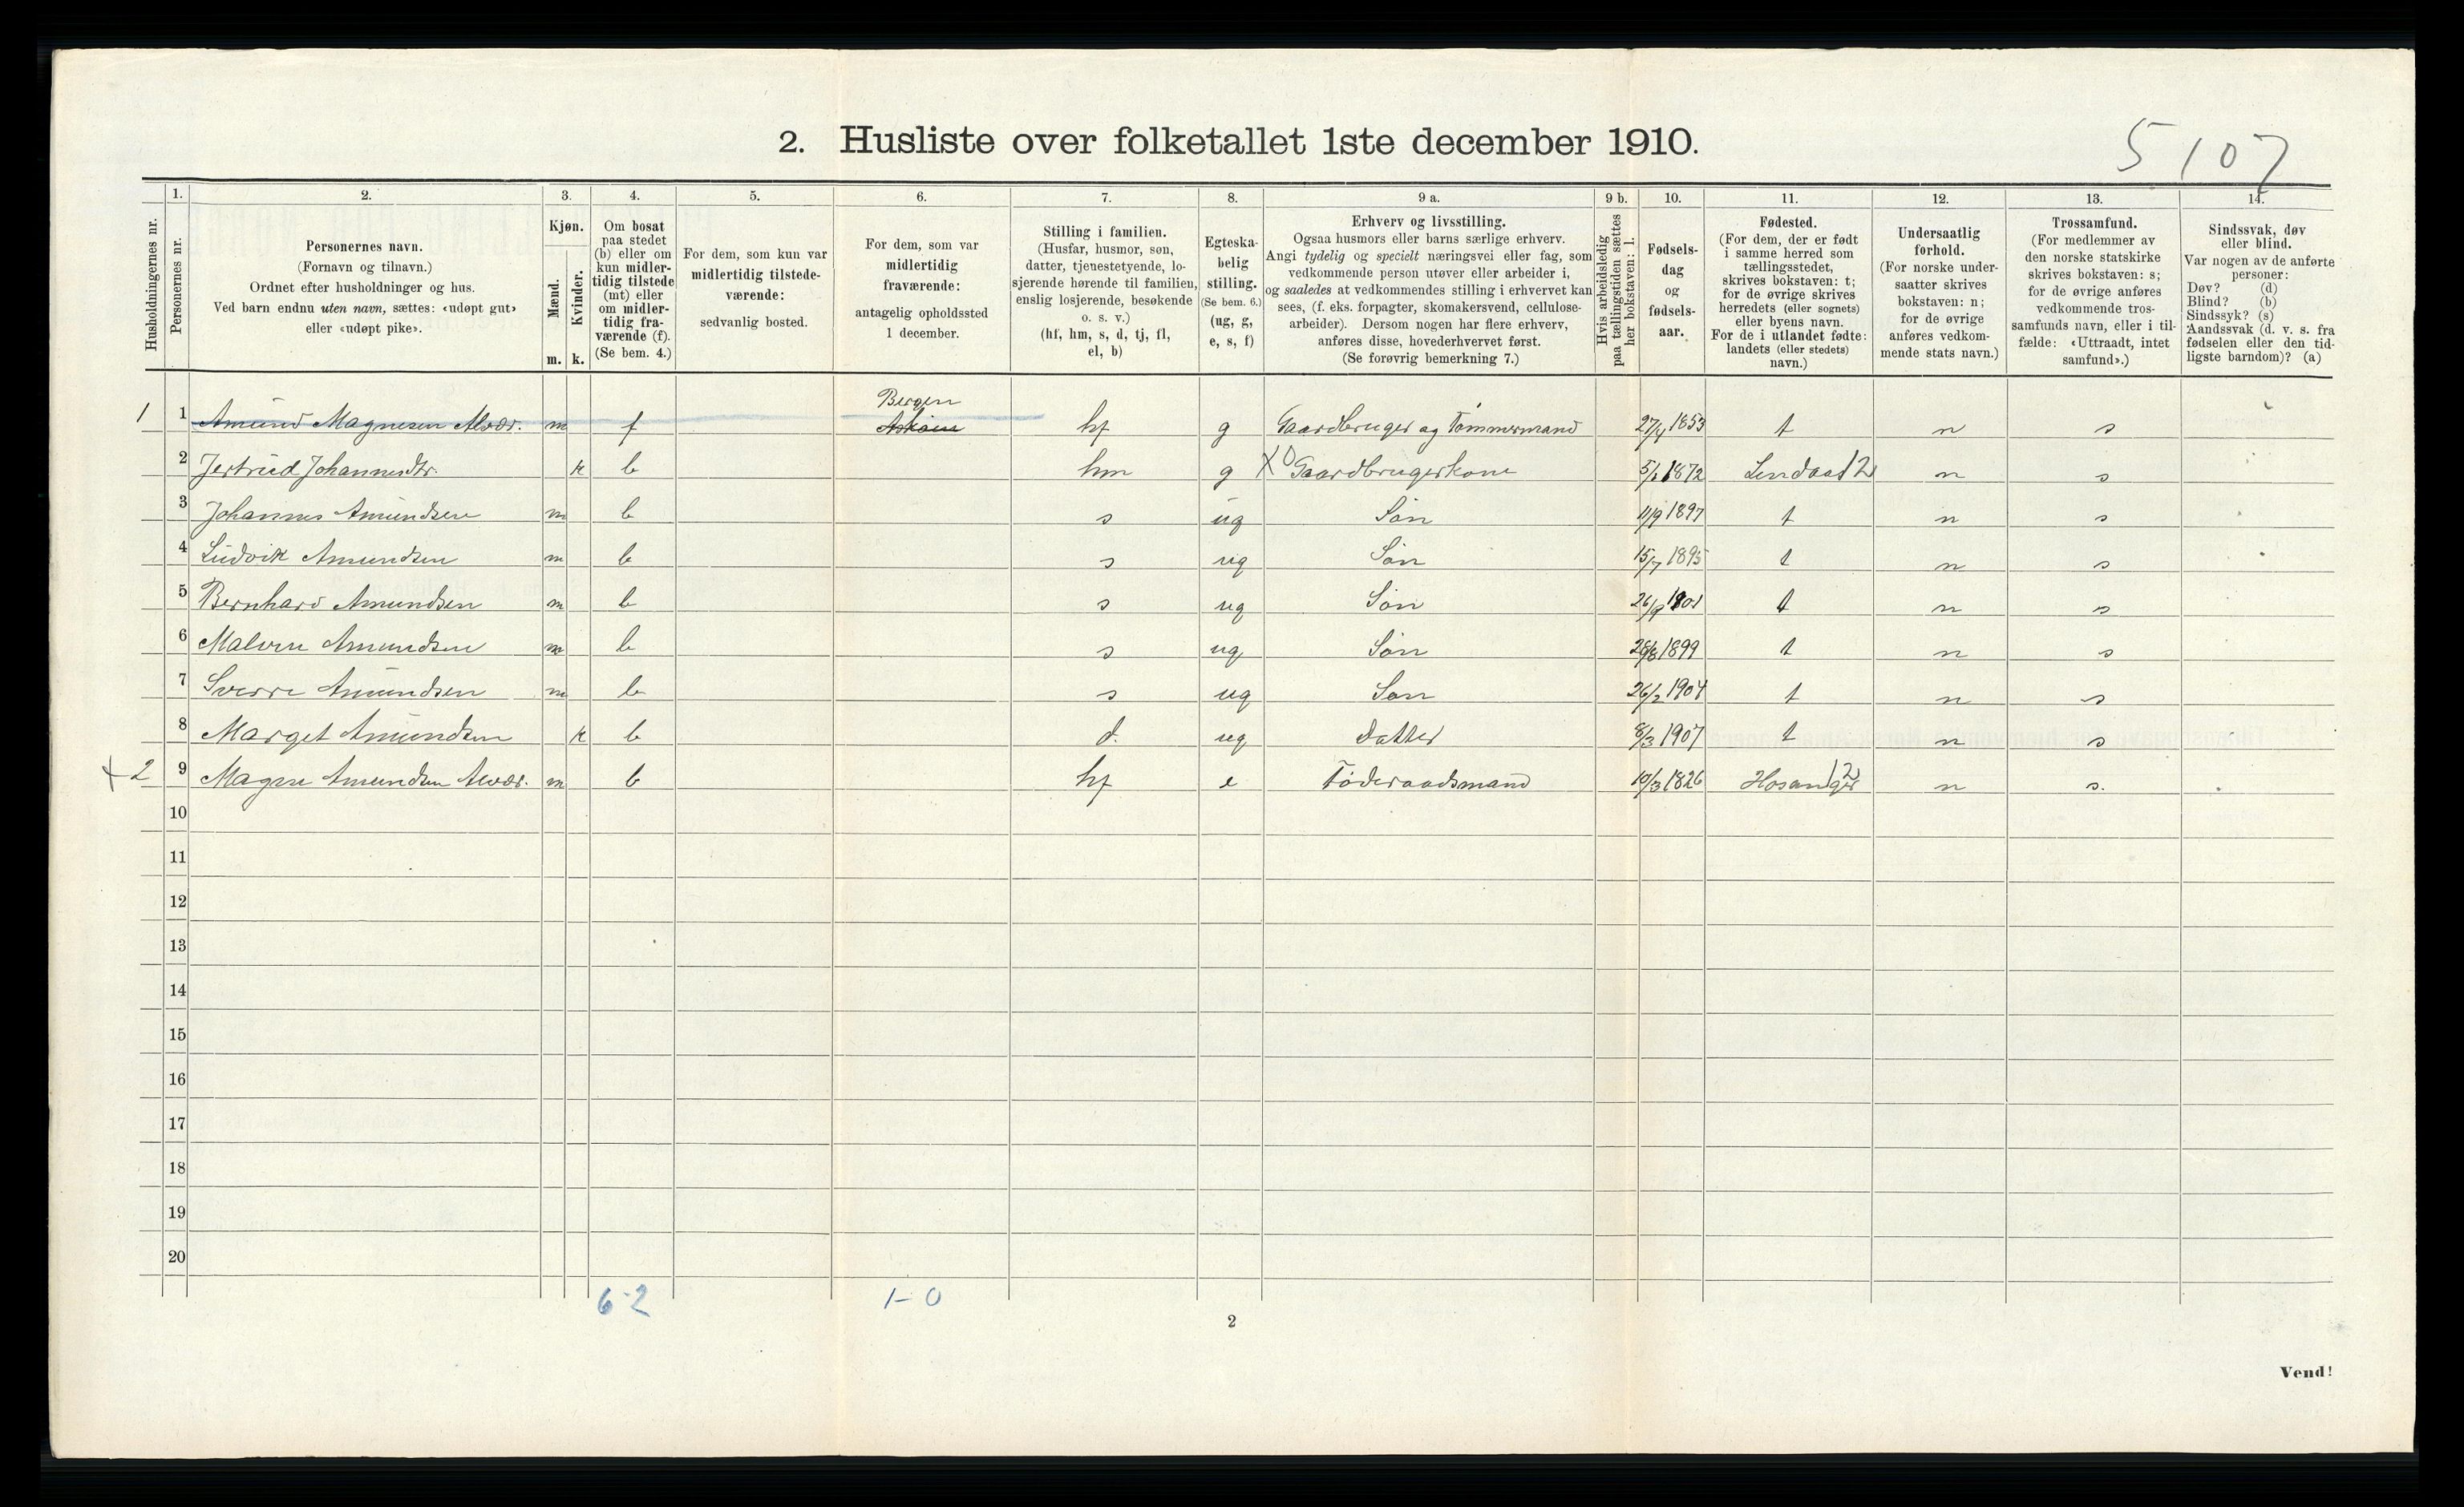 5107
2. Husliste over folketallet 1ste december 1910.
1. 2. 3. 4. 5. 6. 7. 8. 9 a. 9 b. 10. 11. 12. 13. 14.
Husholdningernes nr.
Personernes nr.
Personernes navn.
(Fornavn og tilnavn.)
Ordnet efter husholdninger og hus.
Ved barn endnu uten navn, sættes: «udøpt gut»
eller «udøpt pike».
Kjøn.
Mænd.
m.
Kvinder.
k.
Om bosat
paa stedet
(b) eller om
kun midler-
tidig tilstede
(mt) eller
om midler-
tidig fra-
værende (f).
(Se bem. 4.)
For dem, som kun var
midlertidig tilstede-
værende:
sedvanlig bosted.
For dem, som var
midlertidig
fraværende:
antagelig opholdssted
1 december.
Stilling i familien.
(Husfar, husmor, søn,
datter, tjenestetyende, lo-
sjerende hørende til familien,
enslig losjerende, besøkende
o. s. v.)
(hf, hm, s, d, tj, fl,
el, b)
Egteska-
belig
stilling.
(Se bem. 6.)
(ug, g,
e, s, f)
Erhverv og livsstilling.
Ogsaa husmors eller barns særlige erhverv.
Angi tydelig og specielt næringsvei eller fag, som
vedkommende person utøver eller arbeider i,
og saaledes at vedkommendes stilling i erhvervet kan
sees, (f. eks. forpagter, skomakersvend, cellulose-
arbeider). Dersom nogen har flere erhverv,
anføres disse, hovederhvervet først.
(Se forøvrig bemerkning 7.)
Hvis arbeidsledig
paa tællingstiden sættes
her bokstaven: l.
Fødsels-
dag
og
fødsels-
aar.
Fødested.
(For dem, der er født
i samme herred som
tællingsstedet,
skrives bokstaven: t;
for de øvrige skrives
herredets (eller sognets)
eller byens navn.
For de i utlandet fødte:
landets (eller stedets)
navn.)
Undersaatlig
forhold.
(For norske under-
saatter skrives
bokstaven: n;
for de øvrige
anføres vedkom-
mende stats navn.)
Trossamfund.
(For medlemmer av
den norske statskirke
skrives bokstaven: s;
for de øvrige anføres
vedkommende tros-
samfunds navn, eller i til-
fælde: «Uttraadt, intet
samfund».)
Sindssvak, døv
eller blind.
Var nogen av de anførte
personer:
Døv? (d)
Blind? (b)
Sindssyk? (s)
Aandssvak (d. v. s. fra
fødselen eller den tid-
ligste barndom)? (a)
Bergen
1 1 Amund Magnesen Alvær. m f hf g Gaardbruger og Tømmermand 27/4 1853 t n s
2 Jertrud Johannesdtr. k b hm g X Gaardbrugerkone 5/1 1872 Lindaas 12 n s
3 Johannes Amundsen m b s ug Søn 11/9 1897 t n s
4 Ludvik Amundsen m b s ug Søn 15/7 1895 t n s
5 Bernhard Amundsen m b s ug Søn 26/9 1901 t n s
6 Malvin Amundsen m b s ug Søn 28/8 1899 t n s
7 Sverre Amundsen m b s ug Søn 26/2 1904 t n s
8 Marget Amundsen k b d. ug Datter 8/3 1907 t n s
+ 2 9 Magne Amundsen Alvær. m b hf e Føderaadsmand 10/3 1826 Hosanger 12 n s.
10
11
12
13
14
15
16
17
18
19
20
6-2 1-0
2
Vend!